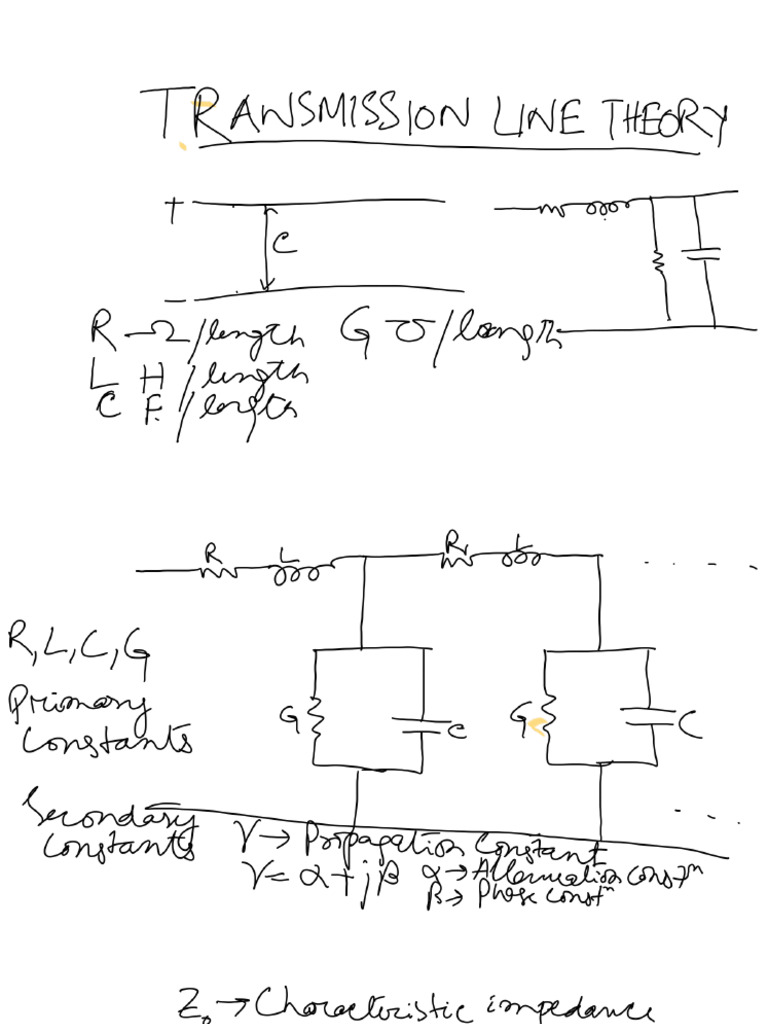 TRANSMISSION LINE THEORY
+
C
-
R - Ω/length G ℧/length
L H/length
C F/length
R L R L
. . . .
R, L, C, G
Primary
Constants
G C G C
Secondary
Constants
γ → Propagation Constant
γ = α + jβ α → Attenuation constn
β → Phase constn
Z₀ → Characteristic impedance